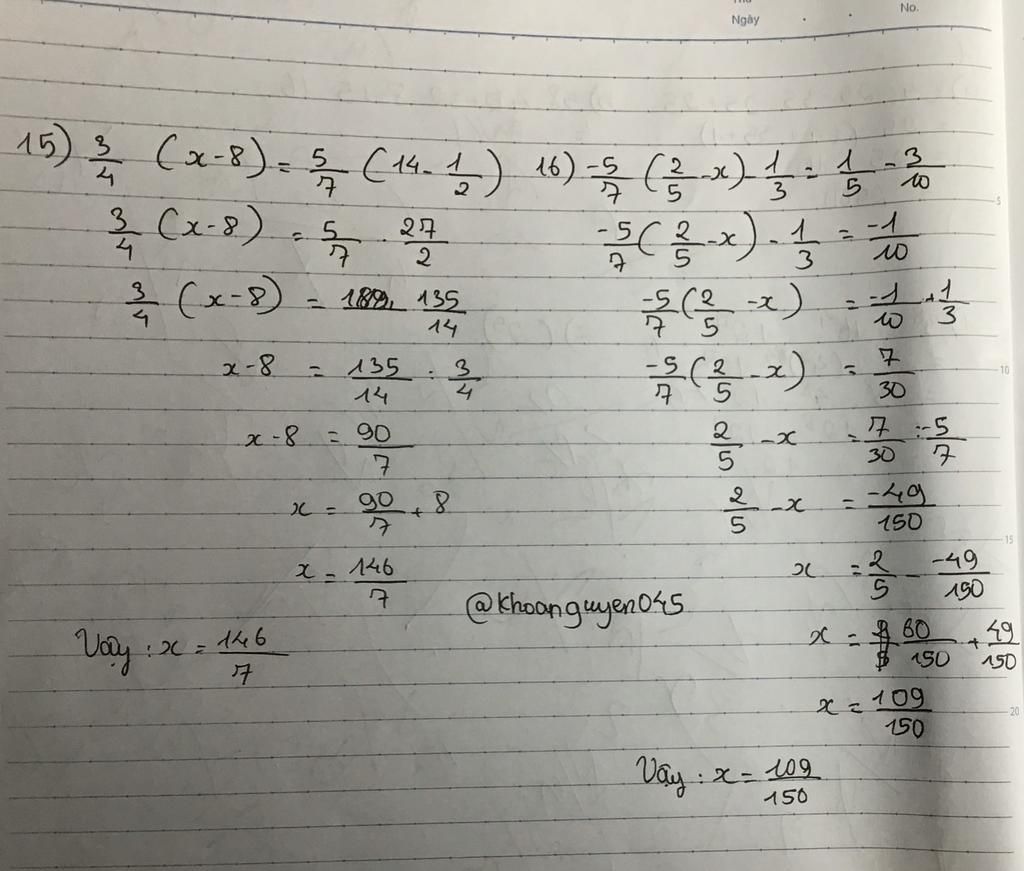 Ngày
No.
15) 3/4 (x-8) = 5/7 (14 - 1/2)
3/4 (x-8) = 5/7 . 27/2
3/4 (x-8) = 135/14
x-8 = 135/14 : 3/4
x-8 = 90/7
x = 90/7 + 8
x = 146/7
Vậy : x = 146/7
16) -5/7 (2/5 - x) - 1/3 = 1/5 - 3/10
-5/7 (2/5 - x) - 1/3 = -1/10
-5/7 (2/5 - x) = -1/10 + 1/3
-5/7 (2/5 - x) = 7/30
2/5 - x = 7/30 : -5/7
2/5 - x = -49/150
x = 2/5 - -49/150
x = 60/150 + 49/150
x = 109/150
Vậy : x = 109/150
@khoanguyen045
5
10
15
20